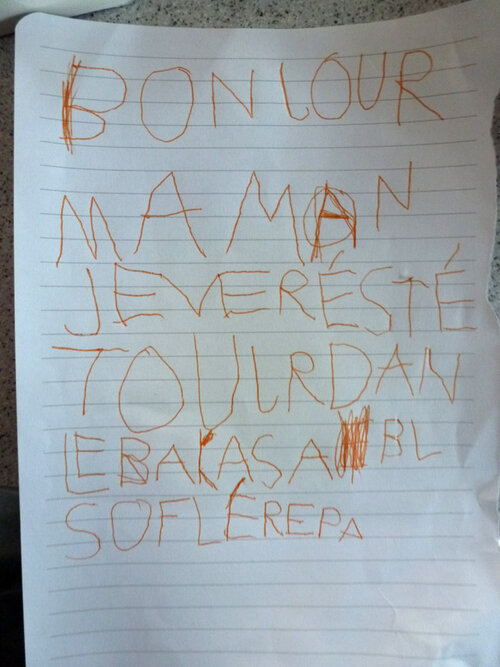 BONLOUR
MAMAN
JEVERÉSTÉ
TOULRDAN
LEBAKASA BL
SOFLÉREPA